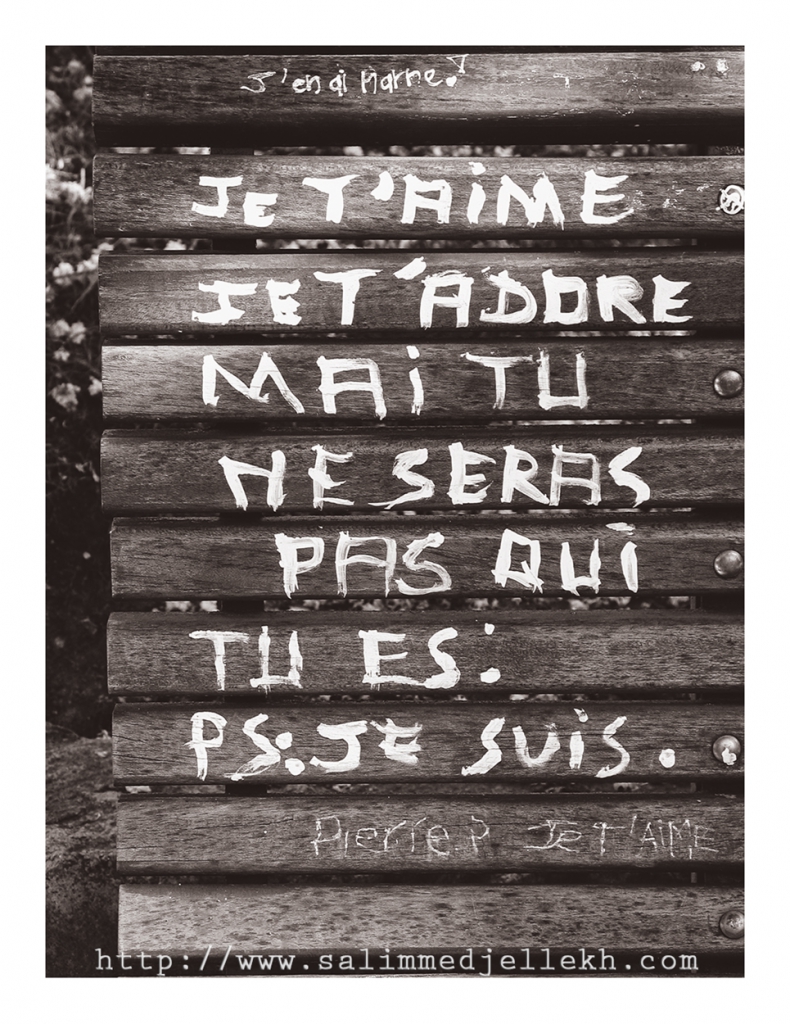 J'en ai Marre!
JE T'AiME
JE T'ADORE
MAi TU
NE SERAS
PAS QUi
TU ES:
PS: JE SUiS.
Pierre.P JE T'AiME
http://www.salimmedjellekh.com